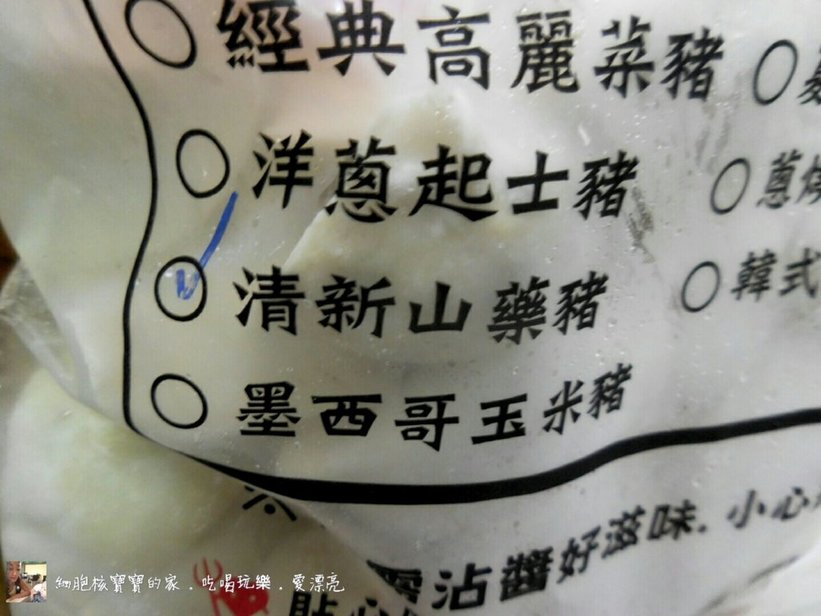 經典高麗菜豬
洋蔥起士豬
蔥
清新山藥豬
韓式
墨西哥玉米豬
沾醬好滋味.小心
細胞核寶寶的家.吃喝玩樂.愛漂亮